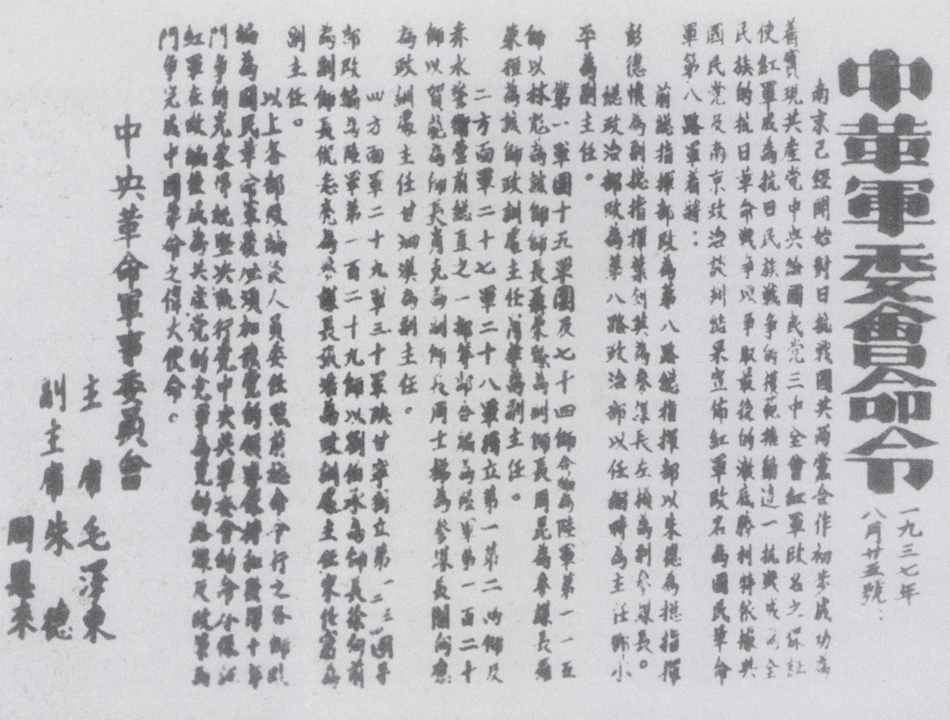 中革軍委會命令
一九三七年
八月廿五號:
南京已經開始對日抗戰國共兩黨合作初步成功為
着實現共產黨中央給國民黨三中全會紅軍改名之保証
使紅軍成為抗日民族戰爭的模範推動這一抗戰成為全
民族的抗日革命戰爭以爭取最後的澈底勝利特依據與
國民黨及南京政治談判結果宣佈紅軍改名為國民革命
軍第八路軍着將:
前總指揮部改為第八路總指揮部以朱德為總指揮
彭德懷為副總指揮葉劍英為參謀長左權為副參謀長。
總政治部改為第八路政治部以任弼時為主任鄧小
平為副主任。
第一軍團十五軍團及七十四師合編為陸軍第一一五
師以林彪為該師師長聶榮臻為副師長周昆為參謀長羅
榮桓為該師政訓處主任蕭華為副主任。
二方面軍二十七軍二十八軍獨立第一第二兩師及
赤水警衛營前總直之一部等部合編為陸軍第一百二十
師以賀龍為師長肖克為副師長周士梯為參謀長關向應
為政訓處主任甘泗淇為副主任。
四方面軍二十九軍三十軍陝甘寧獨立第一二三四團等
部改編為陸軍第一百二十九師以劉伯承為師長徐向前
為副師長倪志亮為參謀長張浩為政訓處主任宋任窮為
副主任。
以上各部改編後人員委任照前總命令行之各師改
編為國民革命軍後必須加強黨的領導保持和發揚十年
鬥爭的光榮傳統堅決執行黨中央與軍委會的命令保証
紅軍在改編後成為共產黨的黨軍為黨的路線及政策而
鬥爭完成中國革命之偉大使命。
中央革命軍事委員會
主席 毛澤東
副主席 朱德
周恩來